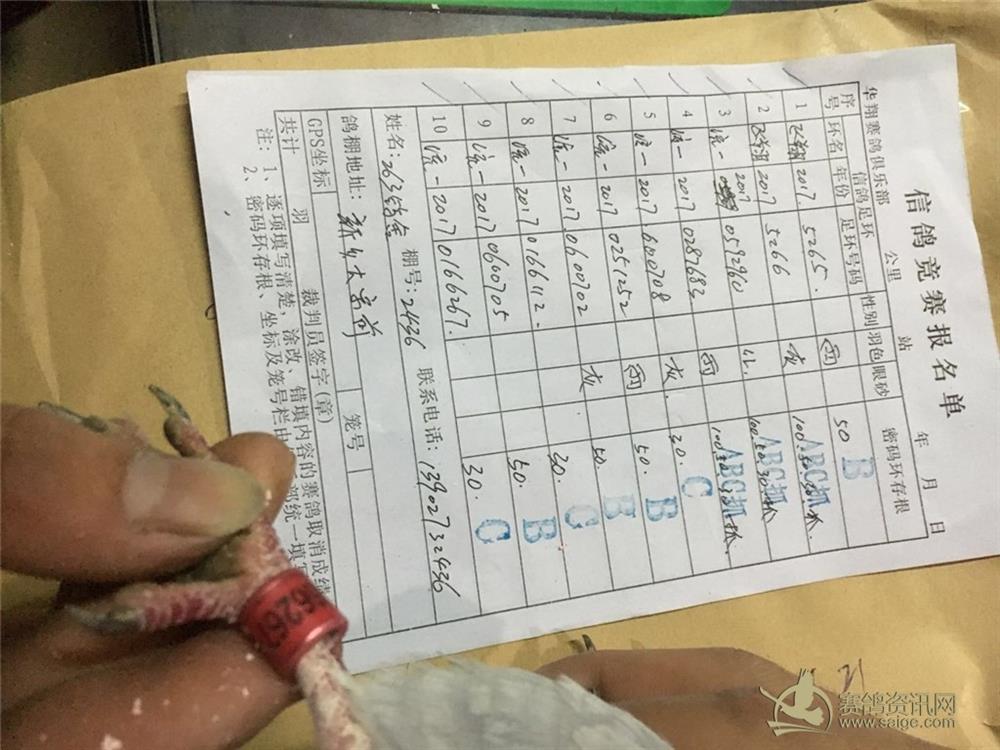 信鸽竞赛报名单
华翔赛鸽俱乐部 公里 站 年 月 日
序号 信鸽足环 性别 羽色 眼砂 密码环存根
环名 年份 足环号码
1 飞翔 2017. 5265. 雨 50 B
2 飞翔 2017 5266 灰 ABC抓
3 统一 2017 0592960 ABC抓
4 统一 2017 0287683 雨 30. C
5 统一 2017 灰 50. B
6 统一 2017 0251252 雨 50. B
7 统一 2017. 0600702 灰 30. C
8 统一 2017 0166112. 50. B
9 统一 2017 0600705 30. C
10 统一 2017 0166267.
姓名: 棚号:2436 联系电话: 13902732436
鸽棚地址: 笼号
GPS坐标
共计 羽 裁判员签字(章)
注: 1、逐项填写清楚,涂改、错填内容的赛鸽取消成绩
2、密码环存根、坐标及笼号栏由 部统一填写
6267
赛鸽资讯网
www.saige.com